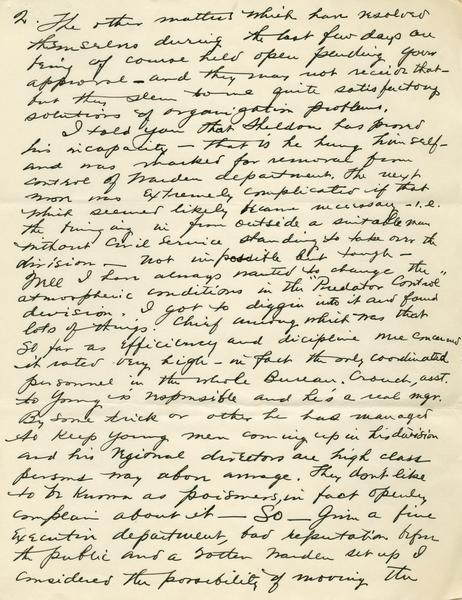 2. The other matters which have resolved
themselves during the last few days are
being of course held open pending your
approval - and they may not receive that -
but they seem to me quite satisfactory
solutions of organization problems.
I told you that Sheldon has proved
his incapacity - that is he hung himself -
and was marked for removal from
control of Warden department. The next
move was extremely complicated if that
which seemed likely became necessary - i.e.
the bringing in from outside a suitable man
without Civil Service standing to take over the
division - not impossible but tough -
Well I have always wanted to change the
atmospheric conditions in the "Predator Control"
division. I got to diggin into it and found
lots of things. Chief among which was that
so far as efficiency and discipline were concerned
it rated very high - in fact the only coordinated
personnel in the whole Bureau. Crouch, asst.
to Young is responsible and he's a real mgr.
By some trick or other he has managed
to keep young men coming up in his division
and his regional directors are high class
persons way above average. They don't like
to be known as poisoners, in fact openly
complain about it - So - Given a fine
executive department, bad reputation before
the public and a rotten Warden set up I
considered the possibility of moving the